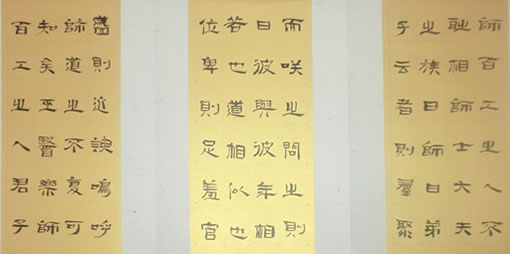 師百工之人不
耻相師士大夫
之族曰師曰弟
子云者則羣聚
而咲之問之則
曰彼與彼年相
若也道相似也
位卑則足羞官
盛則近諛嗚呼
師道之不復可
知矣巫醫樂師
百工之人君子